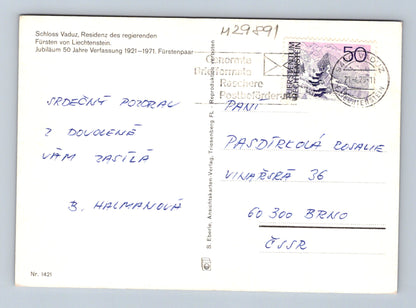 Schloss Vaduz, Residenz des regierenden
Fürsten von Liechtenstein.
Jubiläum 50 Jahre Verfassung 1921–1971. Fürstenpaar
M29891
Genormte
Briefformate
Raschere
Postbeförderung
50
FÜRSTENTUM
LIECHTENSTEIN
VADUZ
LIECHTENSTEIN
SRDEČNÝ POZDRAV
Z DOVOLENÉ
VÁM ZASÍLÁ
B. HALMANOVÁ
PANÍ
PASDÍRKOVÁ ROSALIE
VINAŘSKÁ 36
60 300 BRNO
ČSSR
S. Eberle, Ansichtskarten Verlag, Triesenberg FL. Reproduktion verboten
Nr. 1421